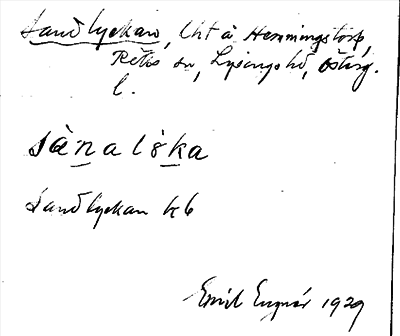 Sandlyckan, Lht å Hemmingstorp,
Rök sn, Lysings hd, Österg.
l.
sànalỳka
Sandlyckan kb
Emil 1929